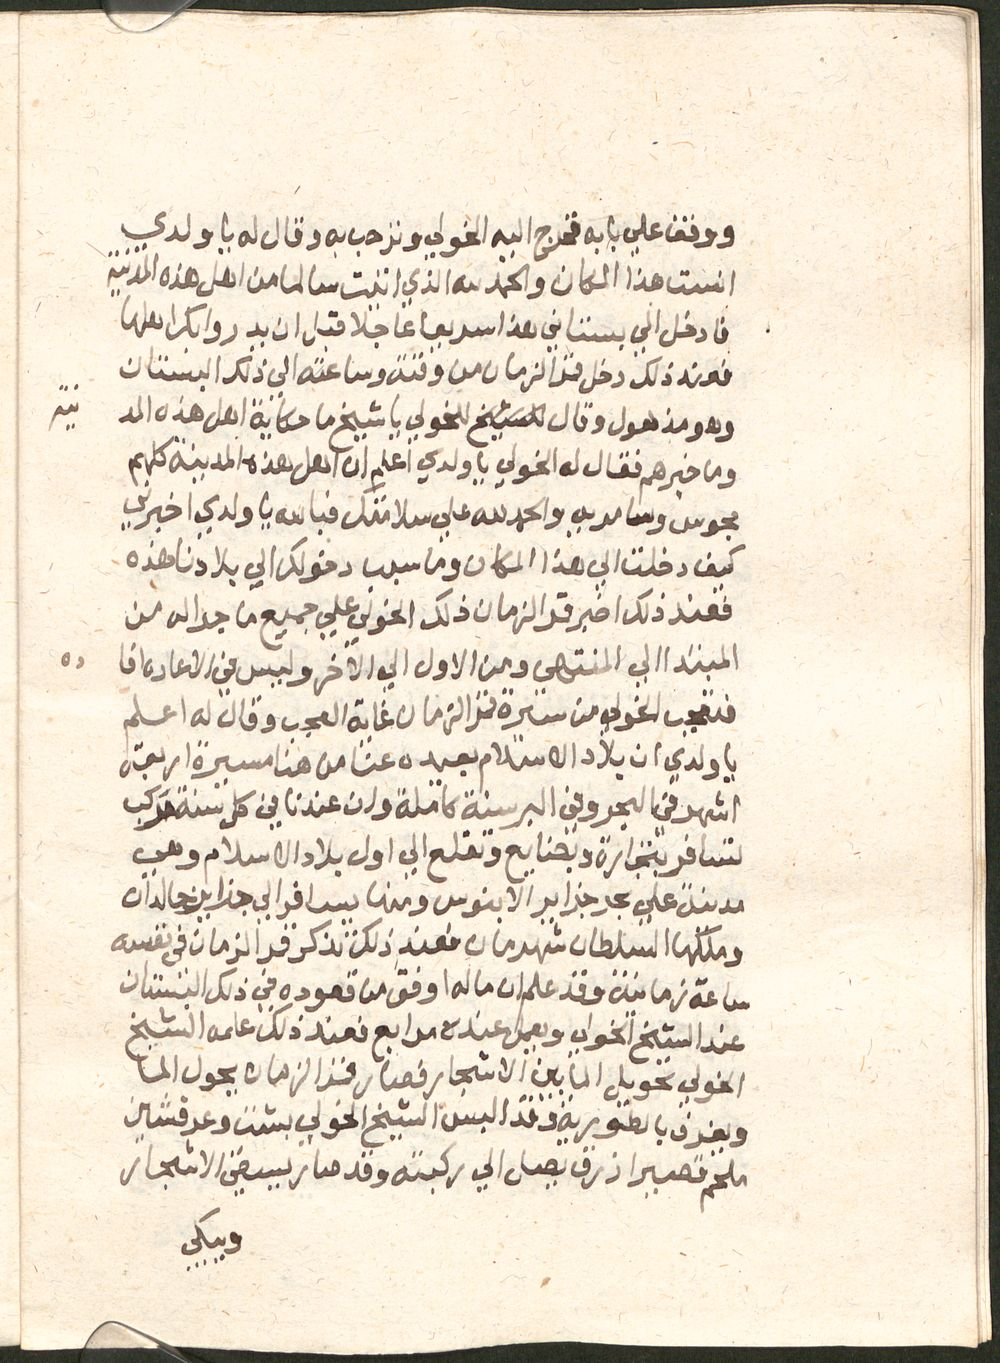 ووقف علي بابه فخرج اليه الخولي وترحب به وقال له يا ولدي
انست هذا المكان والحمد لله الذي اتيت سالما من اهل هذه المدينة
فادخل الي بستاني هذا سريعا عاجلا قبل ان يدروا بك اهلها
فعند ذلك دخل قمر الزمان من وقته وساعته الي ذلك البستان
وهو مذهول وقال للشيخ الخولي يا شيخ ما حكاية اهل هذه المد
ينة
وما خبرهم فقال له الخولي يا ولدي اعلم ان اهل هذه المدينة كلهم
مجوس وسامريه والحمد لله علي سلامتك فبالله يا ولدي اخبرني
كيف دخلت الي هذا المكان وما سبب دخولك الي بلادنا هذه
فعند ذلك اخبر قمر الزمان ذلك الخولي علي جميع ما جرا له من
المبتدا الي المنتهي ومن الاول الي الآخر وليس في الاعاده افا
ده
فتعجب الخولي من سيرة قمر الزمان غاية العجب وقال له اعلم
يا ولدي ان بلاد الاسلام بعيده عنا من هنا مسيرة اربعة
اشهر في البحر وفي البر سنة كاملة وان عندنا في كل سنة مركب
تسافر بتجارة وبضايع وتقلع الي اول بلاد الاسلام وهي
مدينة علي بحر جزاير الابنوس ومنها يسافر الي جزاير خالدان
وملكها السلطان شهرمان فعند ذلك تذكر قمر الزمان في نفسه
ساعة زمانية وقد علم ان ماله اوفق من قعوده في ذلك البستان
عند الشيخ الخولي ويعمل عنده مرابع فعند ذلك علمه الشيخ
الخولي تحويل الما بين الاشجار فصار قمر الزمان يحول الما
ويعزق بالطورية وقد البس الشيخ الخولي بشت وعرقشين
ملحم قصير ازرق يصل الي ركبته وقد صار يسقي الاشجار
ويبكي